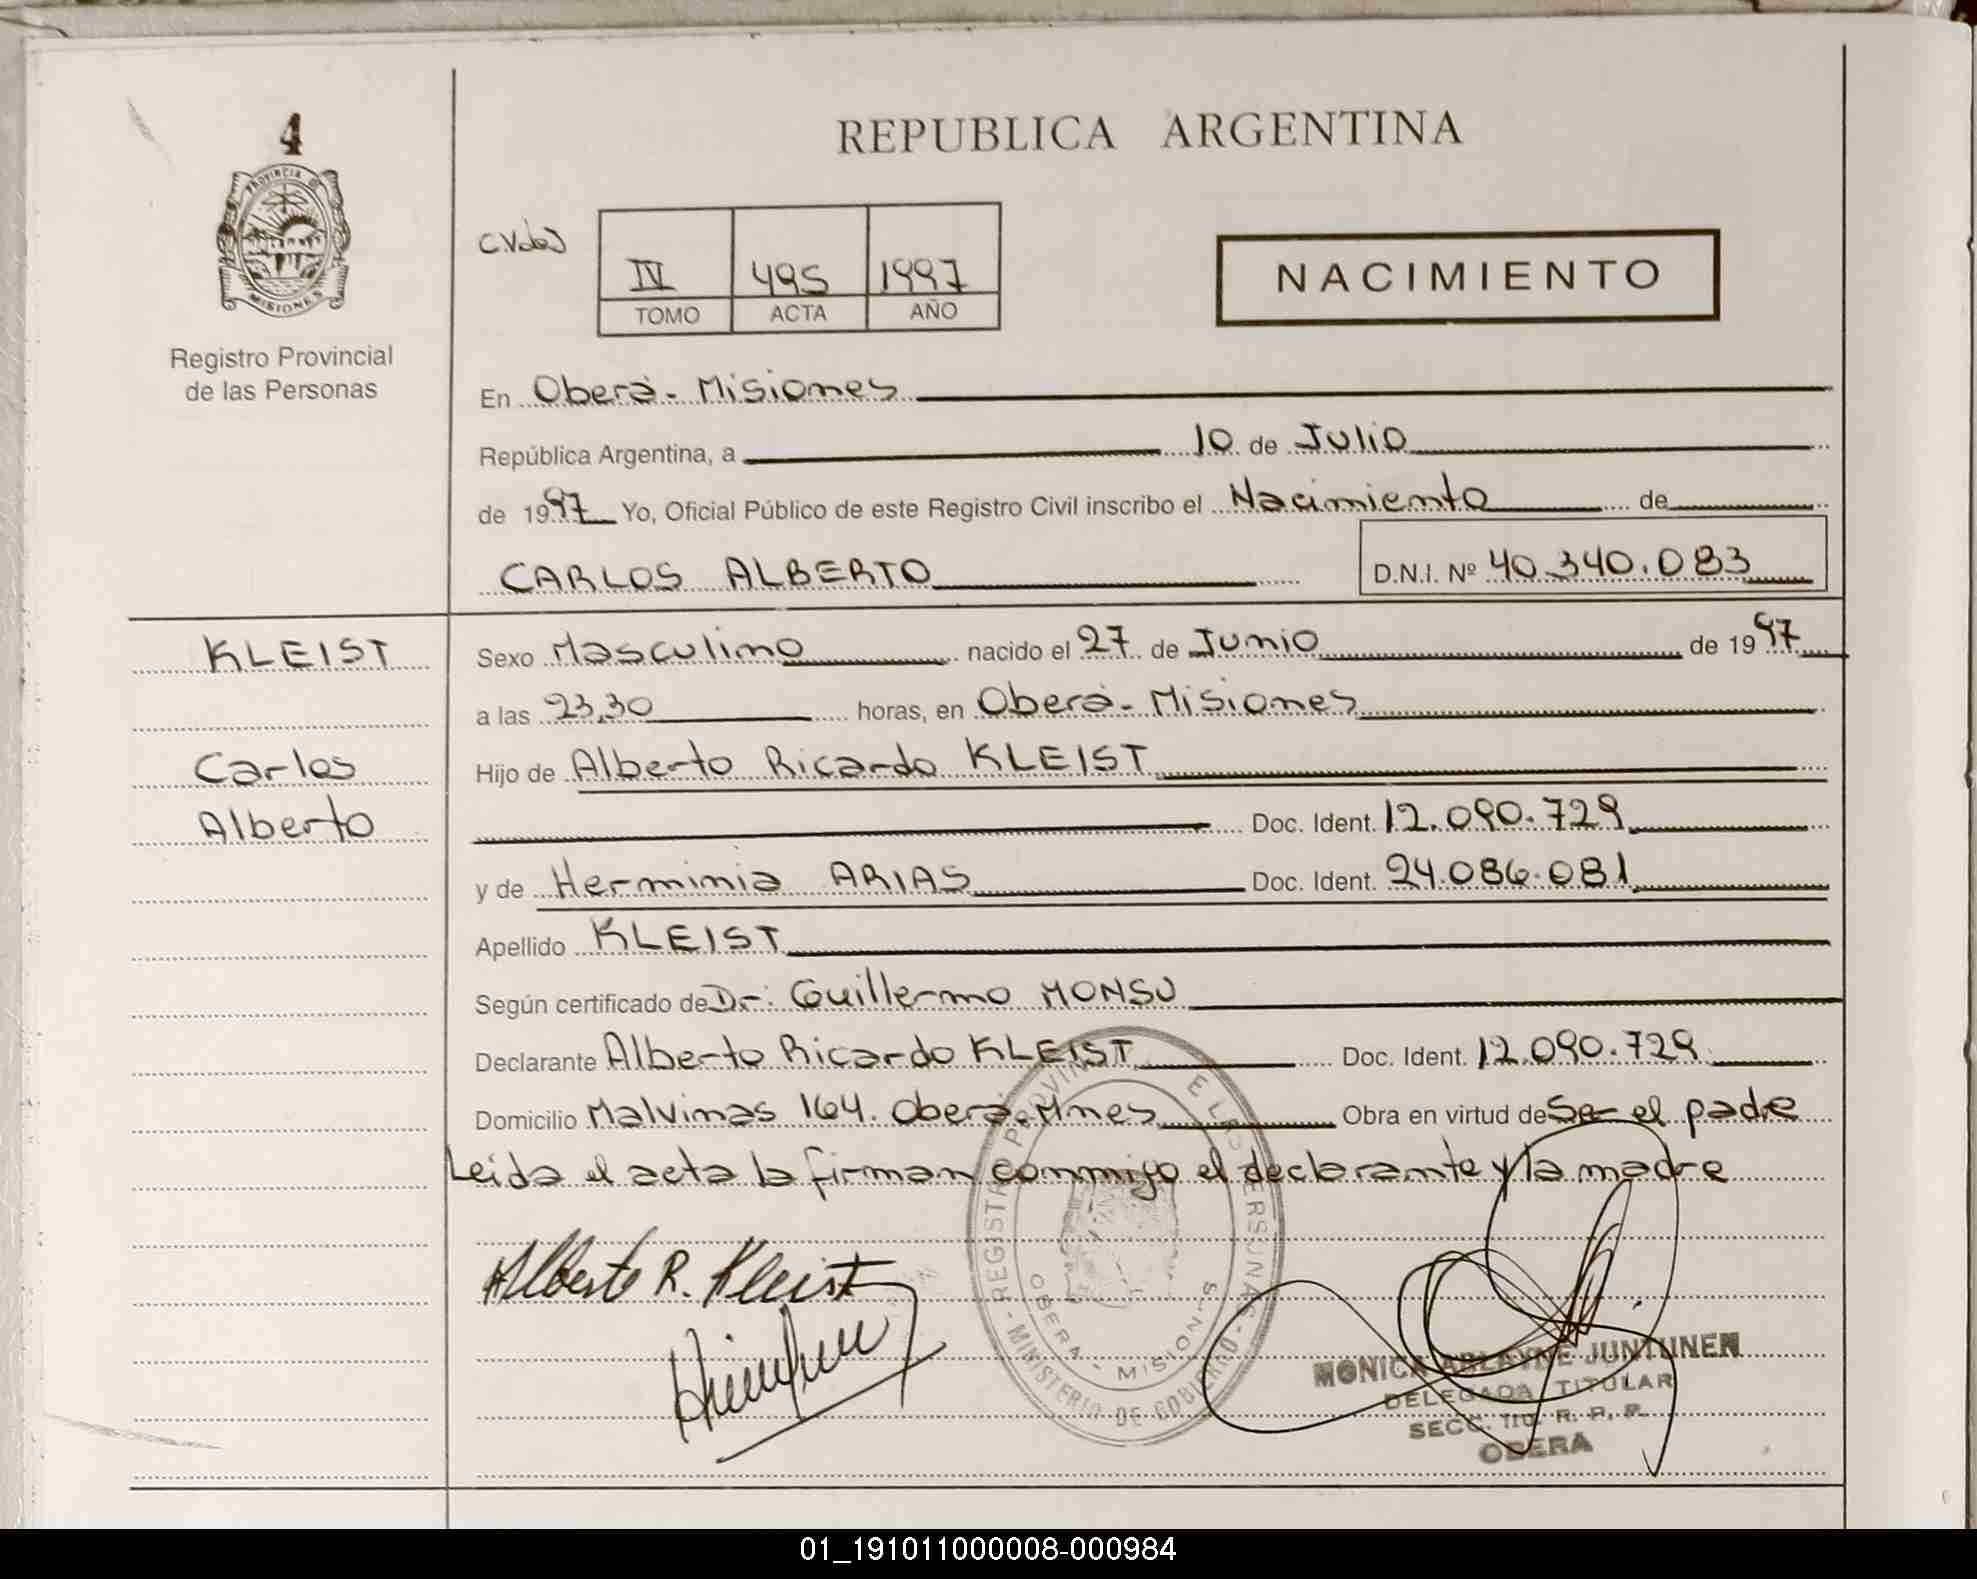 4
REPUBLICA ARGENTINA
PROVINCIA DE
MISIONES
IV 495 1997
TOMO ACTA AÑO
NACIMIENTO
Registro Provincial
de las Personas
En Oberá - Misiones
República Argentina, a 10 de Julio
de 1997 Yo, Oficial Público de este Registro Civil inscribo el Nacimiento de
CARLOS ALBERTO D.N.I. Nº 40.340.083
KLEIST
Sexo Masculino nacido el 27 de Junio de 1997
a las 23,30 horas, en Oberá - Misiones
Carlos
Alberto
Hijo de Alberto Ricardo KLEIST
Doc. Ident. 12.090.729
y de Herminia ARIAS Doc. Ident. 24.086.081
Apellido KLEIST
Según certificado de Dr: Guillermo MONSU
Declarante Alberto Ricardo KLEIST Doc. Ident. 12.090.729
Domicilio Malvinas 164. Oberá. Mnes Obra en virtud de Ser el padre
Leida el acta la firman conmigo el declarante y la madre
Alberto R. Kleist
OBERA - MISIONES
MINISTERIO DE GOBIERNO
MONICA ARLAYNE JUNTUNEN
DELEGADA TITULAR
SECC. R. P. P.
OBERA
01_191011000008-000984